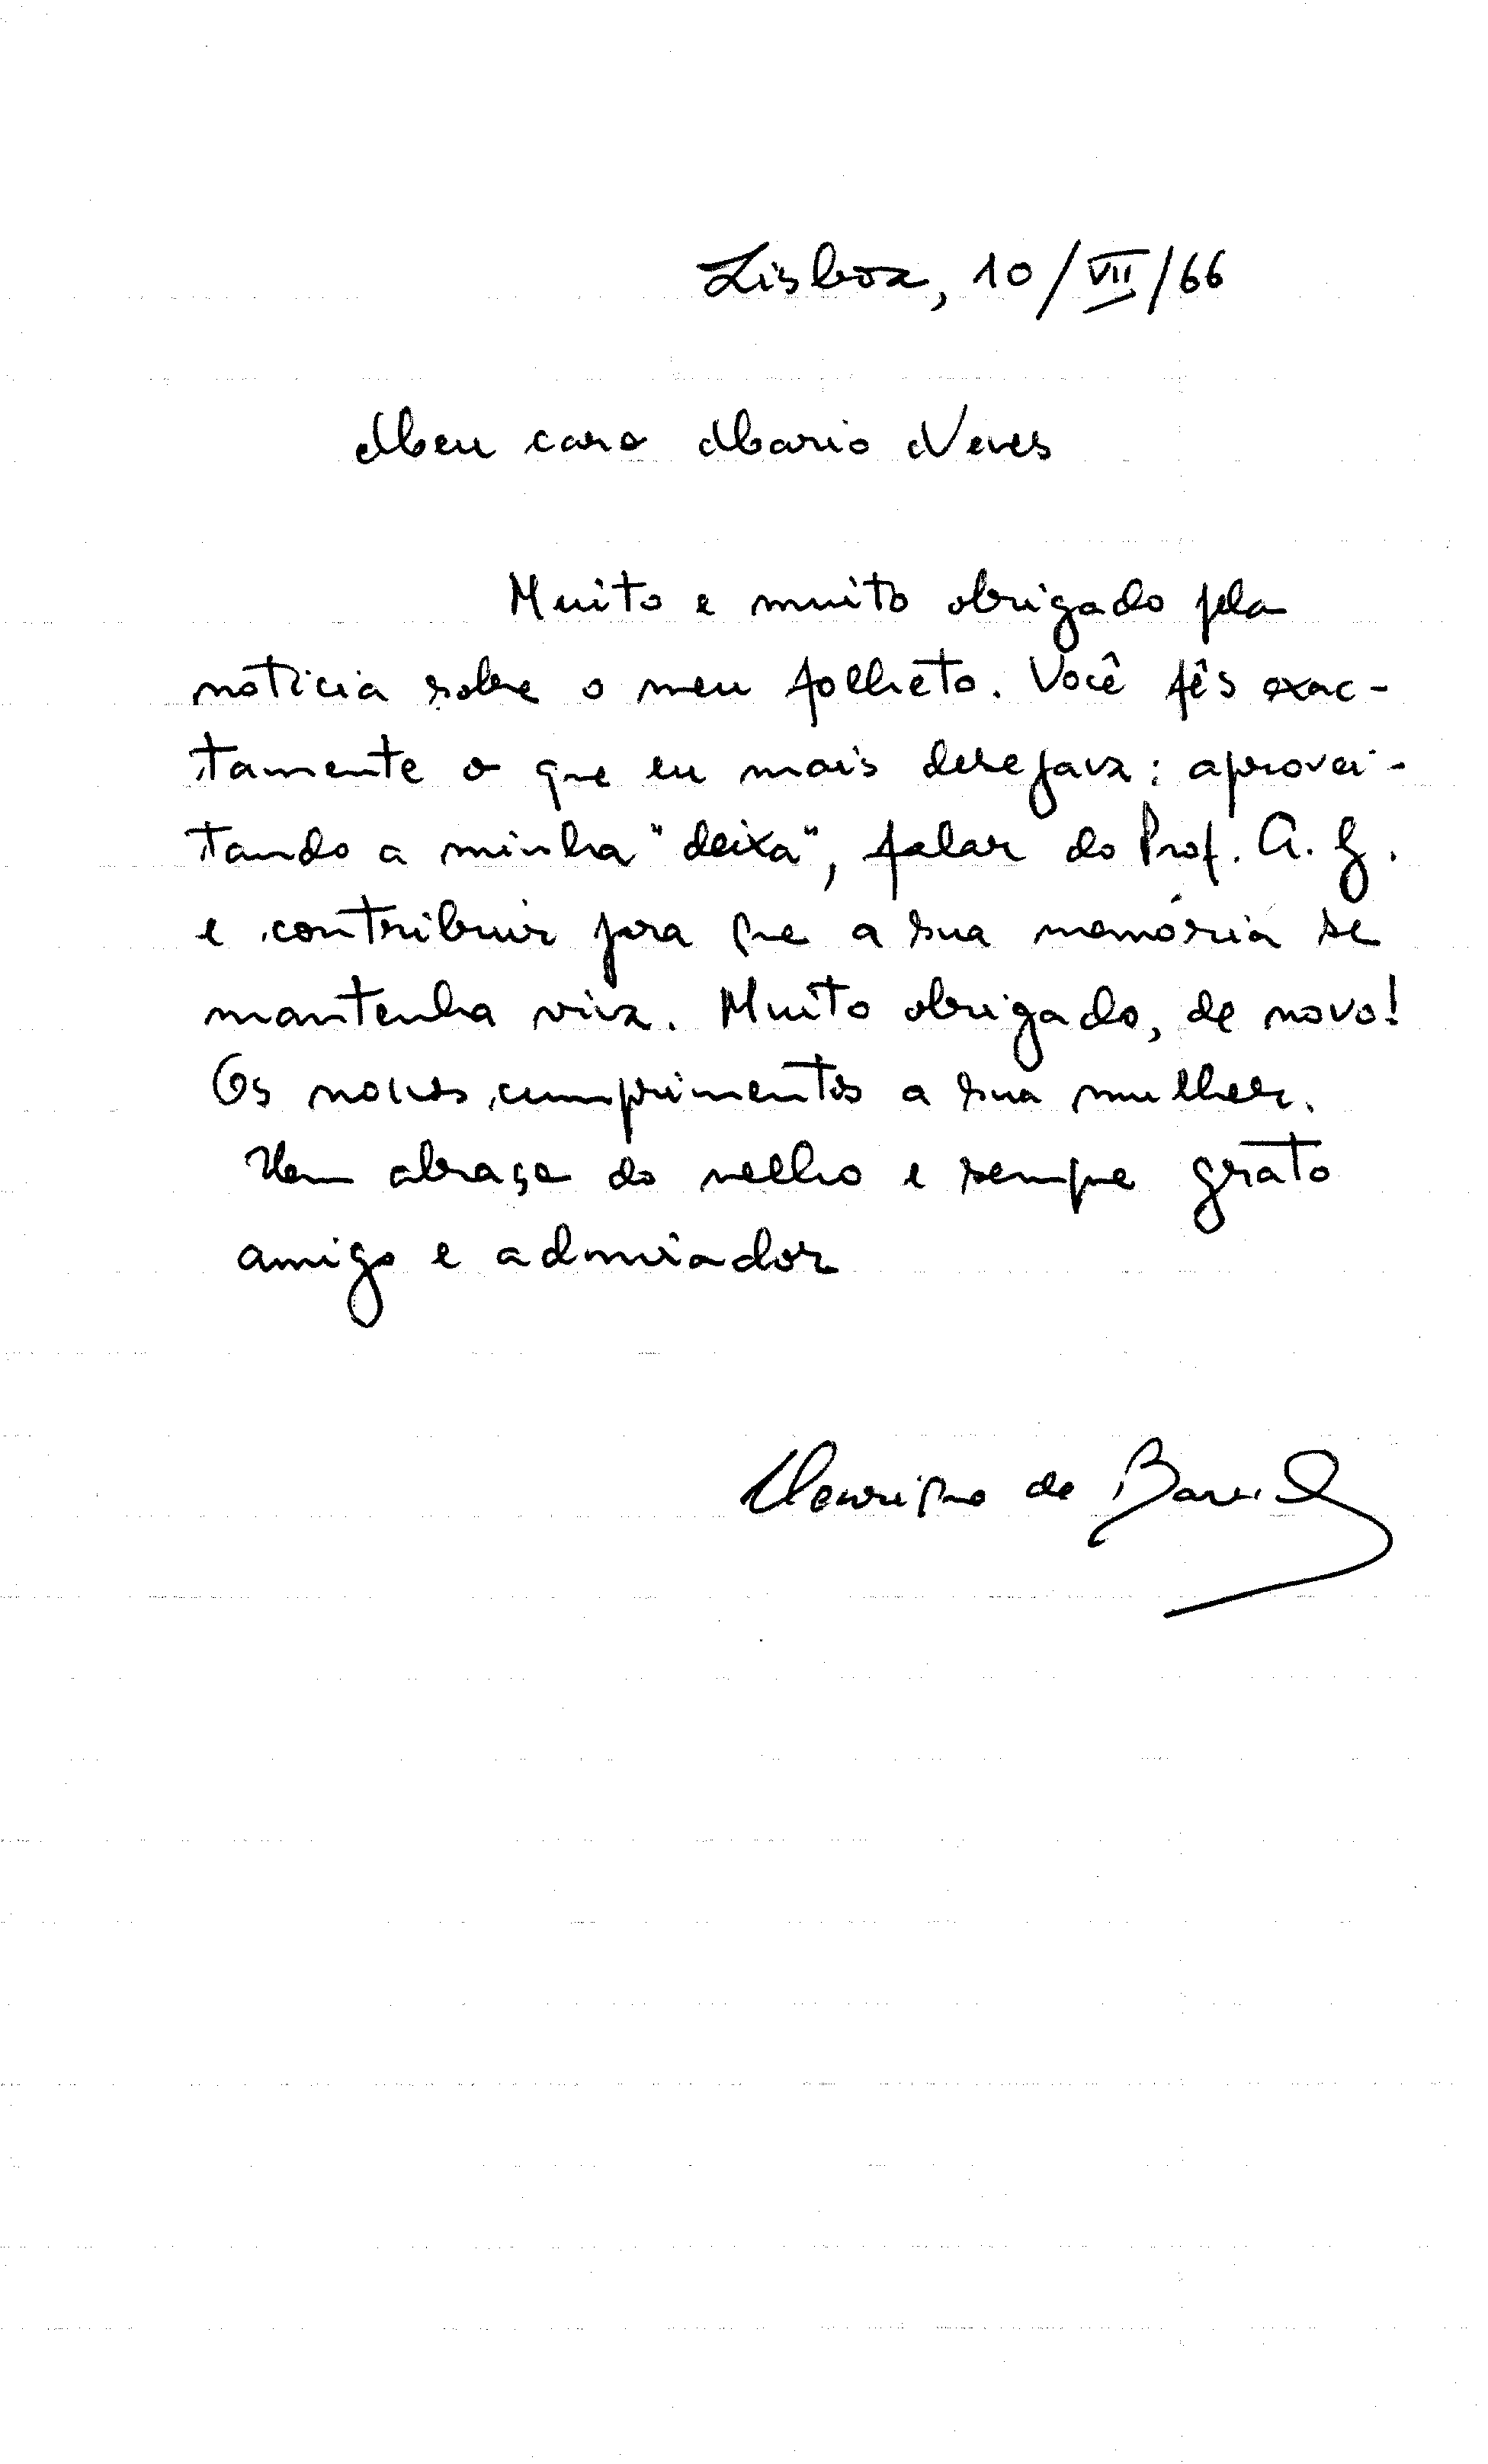 Lisboa, 10/VII/66
Meu caro Mario Neves
Muito e muito obrigado pela
notícia sobre o meu folheto. Você fês exac-
tamente o que eu mais desejava: aprovei-
tando a minha "deixa", falar do Prof. A. G.
e contribuir para que a sua memória se
mantenha viva. Muito obrigado, de novo!
Os nossos cumprimentos a sua mulher.
Um abraço do velho e sempre grato
amigo e admirador
Henrique de Barros